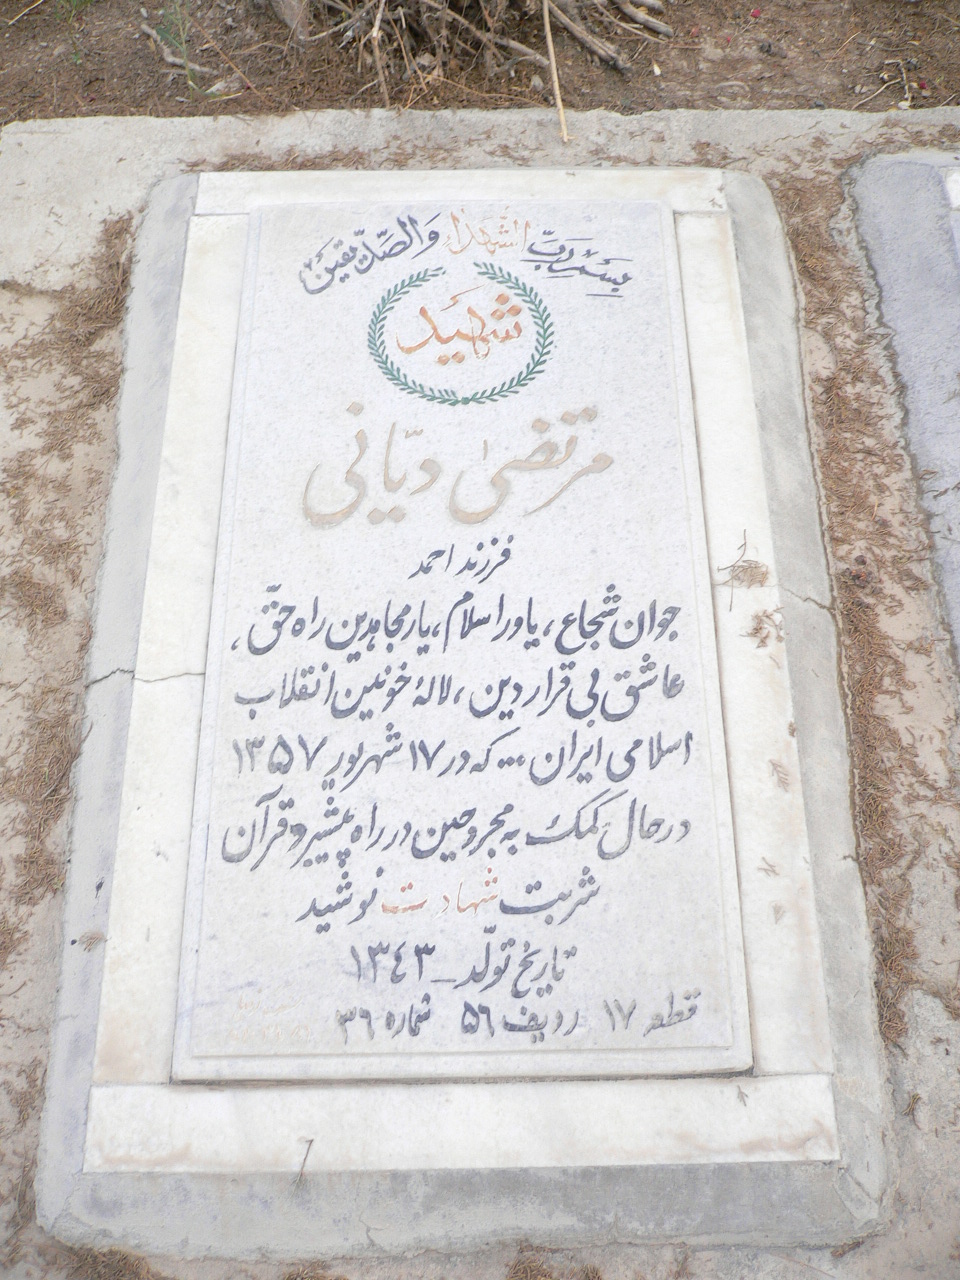 بسم رب الشهداء والصّدّیقین
شهید
مرتضیٰ دیّانی
فرزند احمد
جوان شجاع، یاور اسلام، یار مجاهدین راه حقّ،
عاشق بی قرار دین، لالهٔ خونین انقلاب
اسلامی ایران ... که در ۱۷ شهریور ۱۳۵۷
در حال کمک به مجروحین در راه پیشبرد قرآن
شربت شهادت نوشید
تاریخ تولّد - ۱۳٤۳
قطعه ۱۷ ردیف ۵٦ شماره ۳٦